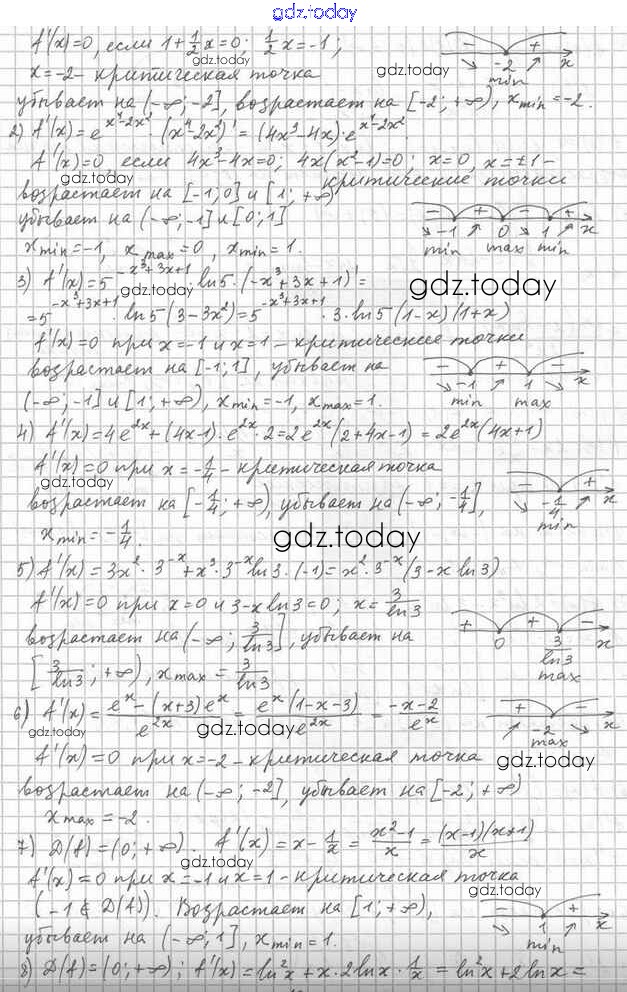 gdz.today
f'(x)=0, если 1+½x=0; ½x=-1;
x=-2 - критическая точка
- + -2 min x
gdz.today
убывает на (-∞;-2], возрастает на [-2;+∞), x_min=-2.
2) f'(x)=e^(x⁴-2x²)·(x⁴-2x²)'=(4x³-4x)·e^(x⁴-2x²).
f'(x)=0 если 4x³-4x=0; 4x(x²-1)=0; x=0, x=±1 -
критические точки
gdz.today
возрастает на [-1;0] и [1;+∞)
убывает на (-∞;-1] и [0;1]
- + - + -1 0 1 x
min max min
x_min=-1, x_max=0, x_min=1.
3) f'(x)=5^(-x³+3x+1)·ln5·(-x³+3x+1)'=
gdz.today
gdz.today
=5^(-x³+3x+1)·ln5(3-3x²)=5^(-x³+3x+1)·3·ln5(1-x)(1+x)
f'(x)=0 при x=-1 и x=1 - критические точки
возрастает на [-1;1], убывает на
- + - -1 1 x
min max
(-∞;-1] и [1;+∞), x_min=-1, x_max=1.
4) f'(x)=4e^(2x)+(4x-1)·e^(2x)·2=2e^(2x)(2+4x-1)=2e^(2x)(4x+1)
f'(x)=0 при x=-¼ - критическая точка
gdz.today
возрастает на [-¼;+∞), убывает на (-∞;-¼],
- + -¼ x
min
x_min=-¼.
gdz.today
5) f'(x)=3x²·3^(-x)+x³·3^(-x)ln3·(-1)=x²·3^(-x)(3-x ln3)
f'(x)=0 при x=0 и 3-x ln3=0; x=3/ln3
возрастает на (-∞;3/ln3], убывает на
+ + - 0 3/ln3 x
max
[3/ln3;+∞), x_max=3/ln3
6) f'(x)=(e^x-(x+3)e^x)/e^(2x)=e^x(1-x-3)/e^(2x)=(-x-2)/e^x
+ - -2 x
max
gdz.today
gdz.today
f'(x)=0 при x=-2 - критическая точка
gdz.today
возрастает на (-∞;-2], убывает на [-2;+∞)
x_max=-2.
7) D(f)=(0;+∞). f'(x)=x-1/x=(x²-1)/x=(x-1)(x+1)/x
gdz.today
f'(x)=0 при x=-1 и x=1 - критическая точка
gdz.today
(-1∉D(f)). Возрастает на [1;+∞),
- + 1 x
min
убывает на (-∞;1], x_min=1.
8) D(f)=(0;+∞); f'(x)=ln²x+x·2lnx·1/x=ln²x+2lnx=